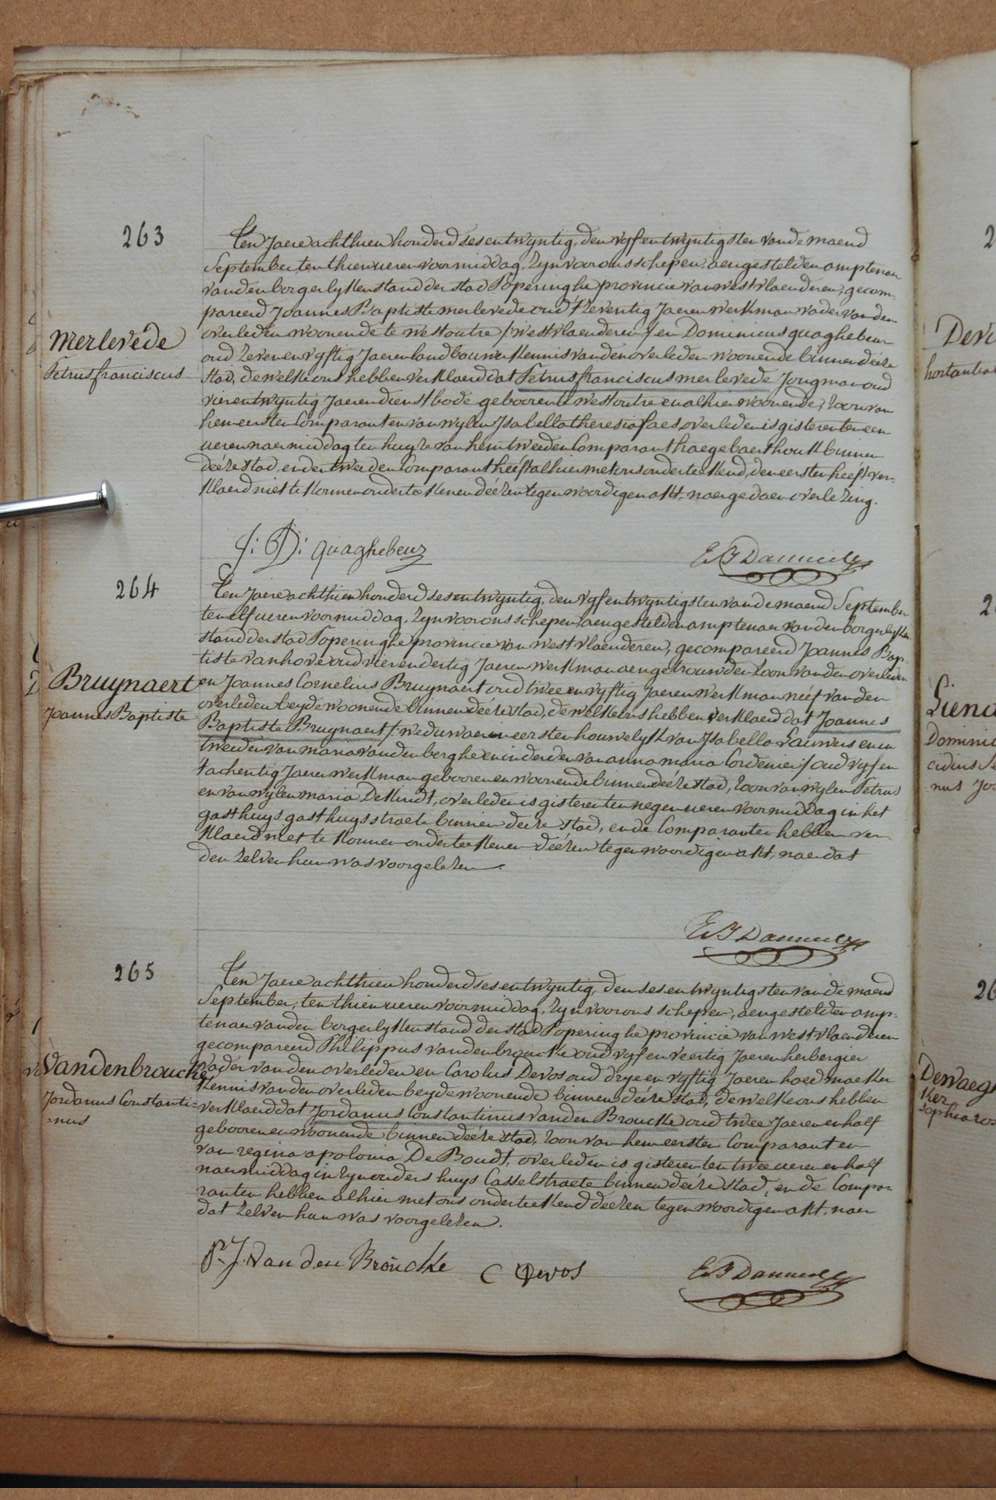 263
Merlevede
Petrus franciscus
Ten Jaere achthien honderd ses en twyntig, den vyf en twyntigsten van de maend
September ten thien ueren voormiddag, Zyn voor ons schepen, aengestelden amptenaer
van den borgerlyken stand der stad Poperinghe provincie van westvlaenderen, gecom-
pareerd Joannes Baptiste merlevede oud tzeventig Jaeren werkman vader van den
overleden woonende te westoutre /westvlaenderen/ en Dominicus quaghebeur
oud zeven en vyftig Jaeren landbouwer kennis van den overleden woonende binnen deeze
stad, de welke ons hebben verklaerd dat Petrus franciscus merlevede Jongman oud
vier en twyntig Jaeren dienstbode gebooren te westoutre en alhier woonende, zoon van
hem eersten Comparant en van wylen Isabella theresia faes, overleden is gisteren ten een
ueren naermiddag ten huyze van hem tweeden Comparant haegebaerthoek binnen
deeze stad, en den tweeden Comparant heeft alhier met ons onderteekend, den eersten heeft ver-
klaerd niet te konnen onderteekenen deezen tegenwoordigen akt, naer gedaen overlezing.
J: D: quaghebeur
264
Bruynaert
Joannes Baptiste
Ten Jaere achthien honderd ses en twyntig, den vyf en twyntigsten van de maend September
ten elf ueren voormiddag, Zyn voor ons schepen aengestelden amptenaer van den borgerlyken
stand der stad Poperinghe provincie van westvlaenderen, gecompareerd Joannes Bap-
tiste vanhove oud vier en dertig Jaeren werkman aengetrouwden zoon van den overleden
en Joannes Cornelius Bruynaert oud twee en vyftig Jaeren werkman neef van den
overleden beyde woonende binnen deeze stad, de welke ons hebben verklaerd dat Joannes
Baptiste Bruynaert /weduwaer in eersten houwelyk van Isabella Lauwers en in
tweeden van maria vanden berghe en in derden van anna maria Cordemie/ oud vyf en
tachentig Jaeren werkman gebooren en woonende binnen deeze stad, zoon van wylen Petrus
en van wylen maria De Kindt, overleden is gisteren ten negen ueren voormiddag in het
gasthuys gasthuysstraete binnen deeze stad, en de Comparanten hebben ver-
klaerd niet te konnen onderteekenen deezen tegenwoordigen akt, naer dat
den zelven hun was voorgelezen.
265
Vandenbroucke
Jordanus Constanti-
nus
Ten Jaere achthien honderd ses en twyntig, den ses en twyntigsten van de maend
September, ten thien ueren voormiddag, Zyn voor ons schepen, aengestelden amp-
tenaer van den borgerlyken stand der stad Poperinghe provincie van westvlaenderen
gecompareerd Philippus vandenbroucke oud vyf en veertig Jaeren herbergier
vader van den overleden en Carolus Devos oud drye en vyftig Jaeren hoedmaeker
kennis van den overleden beyde woonende binnen deeze stad, de welke ons hebben
verklaerd dat Jordanus Constantinus vanden Broucke oud twee Jaeren en half
gebooren en woonende binnen deeze stad, zoon van hem eersten Comparant en
van regina apolonia De Boudt, overleden is gisteren ten twee ueren en half
naermiddag in zyn ouders huys Casselstraete binnen deeze stad, en de Compa-
ranten hebben alhier met ons onderteekend deezen tegenwoordigen akt, naer
dat zelven hun was voorgelezen.
P. J. Van den Broucke
C Devos